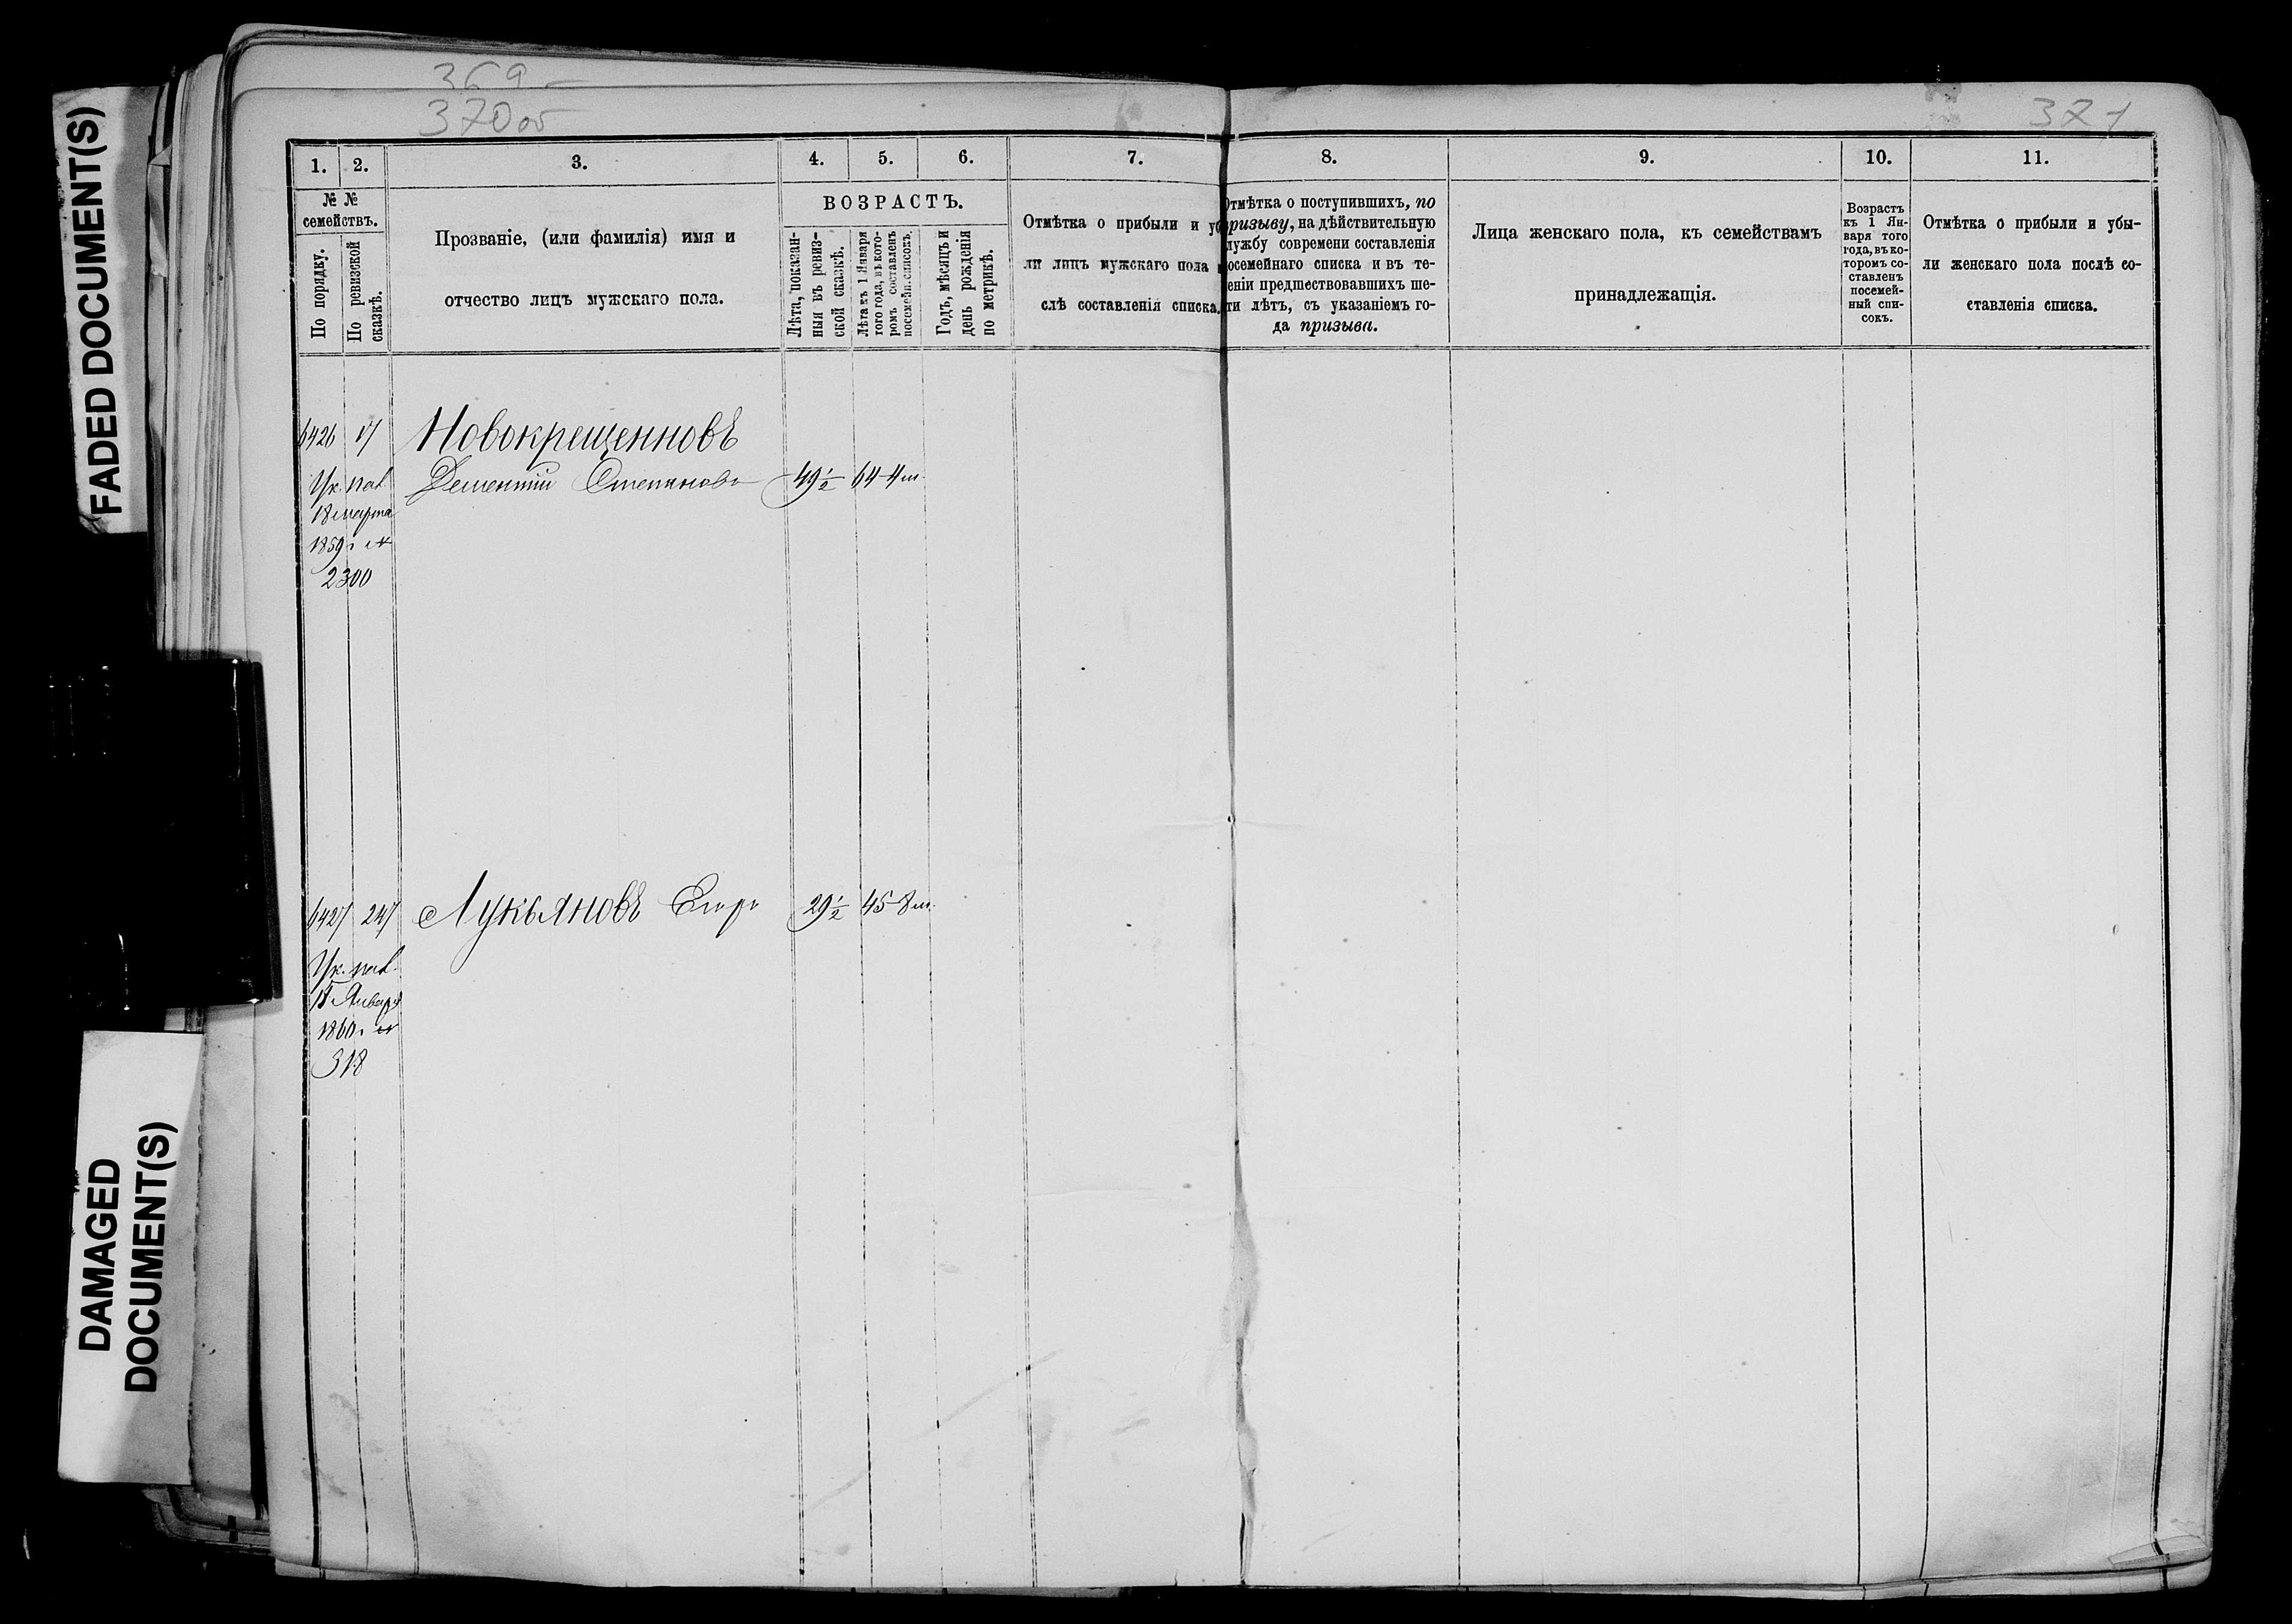 FADED DOCUMENT(S)
DAMAGED
DOCUMENT(S)
369
370об
371
1. 2. 3. 4. 5. 6. 7. 8. 9. 10. 11.
№ №
семействъ.
По порядку.
По ревизской
сказкѣ.
Прозваніе, (или фамилія) имя и
отчество лицъ мужскаго пола.
ВОЗРАСТЪ.
Лѣта, показан-
ныя въ ревиз-
ской сказкѣ.
Лѣта къ 1 Января
того года, въ кото-
ромъ составленъ
посемейн. списокъ.
Годъ, мѣсяцъ и
день рожденія
по метрикѣ.
Отмѣтка о прибыли и уб
ли лицъ мужскаго пола
слѣ составленія списка.
Отмѣтка о поступившихъ, по
призыву, на дѣйствительную
лужбу современи составленія
осемейнаго списка и въ те-
еніи предшествовавшихъ ше-
ти лѣтъ, съ указаніемъ го-
да призыва.
Лица женскаго пола, къ семействамъ
принадлежащія.
Возрастъ
къ 1 Ян-
варя того
года, въ ко-
торомъ со-
ставленъ
посемей-
ный спи-
сокъ.
Отмѣтка о прибыли и убы-
ли женскаго пола послѣ со-
ставленія списка.
6426 17 Новокрещенновъ
Ук. пал. Дементій Степановъ 49½ 64-4м.
18 марта
1859 г №
2300
6427 247 Лукьяновъ Егоръ 29½ 45-8м.
Ук. пал.
Января
1860 г №
318